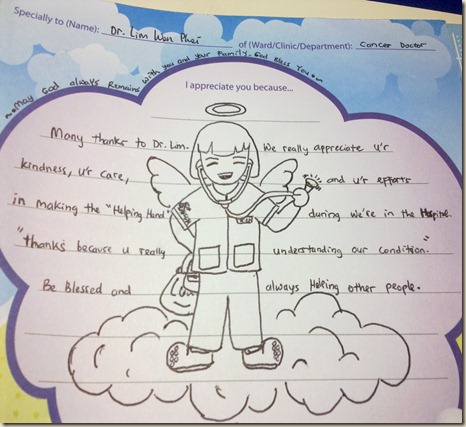 Specially to (Name): Dr. Lim Wen Phei of (Ward/Clinic/Department): Cancer Doctor
May God always Remains with you and your Family. God Bless You
I appreciate you because...
Many thanks to Dr. Lim. We really appreciate u'r
kindness, u'r care, and u'r efforts
in making the "Helping Hand" during we're in the Hospice.
"thanks because u really understanding our condition."
Be Blessed and always Helping other people.